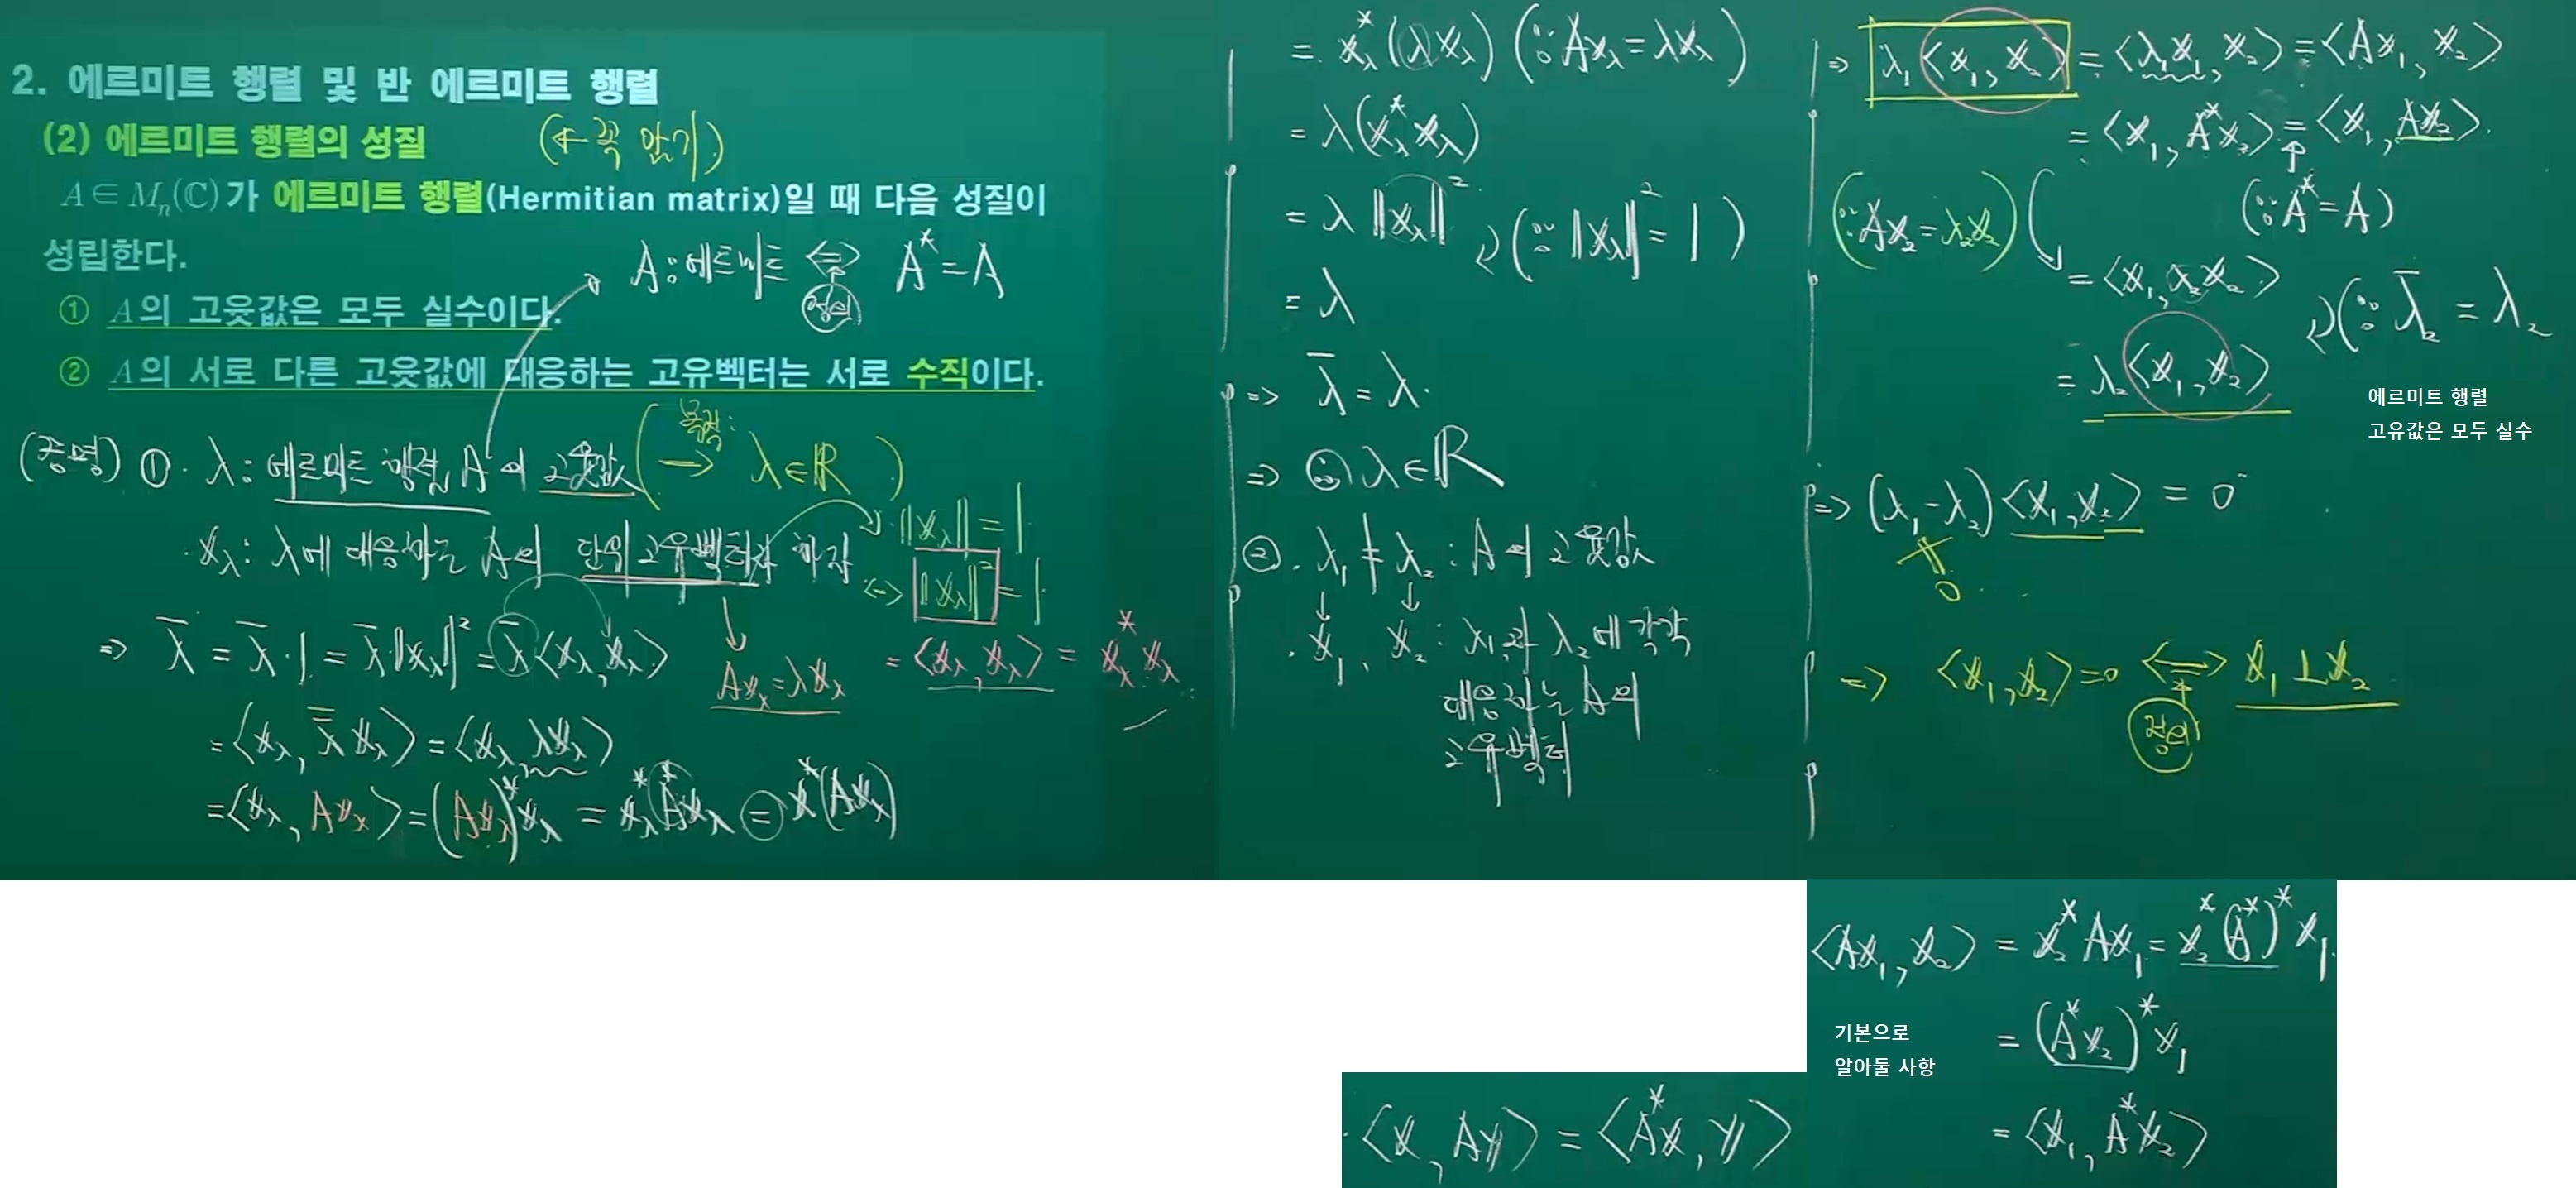 2. 에르미트 행렬 및 반 에르미트 행렬
(2) 에르미트 행렬의 성질 (← 꼭 암기)
A∈Mₙ(ℂ)가 에르미트 행렬(Hermitian matrix)일 때 다음 성질이
성립한다.
A : 에르미트 ⇔ A* = A
정의
① A의 고윳값은 모두 실수이다.
② A의 서로 다른 고윳값에 대응하는 고유벡터는 서로 수직이다.
(증명) ① · λ : 에르미트 행렬 A의 고윳값 (목적: → λ∈ℝ)
· x_λ : λ에 대응하는 A의 단위고유벡터라 하자
‖x_λ‖ = 1
⇔ ‖x_λ‖² = 1
= <x_λ, x_λ> = x_λ* x_λ
Ax_λ = λx_λ
⇒ λ̄ = λ̄·1 = λ̄·‖x_λ‖² = λ̄<x_λ, x_λ>
= <x_λ, λ̿ x_λ> = <x_λ, λx_λ>
= <x_λ, Ax_λ> = (Ax_λ)* x_λ = x_λ* A* x_λ = x*(Ax_λ)
= x_λ*(λx_λ) (∵ Ax_λ = λx_λ)
= λ(x_λ* x_λ)
= λ‖x_λ‖²
(∵ ‖x_λ‖² = 1)
= λ
⇒ λ̄ = λ.
⇒ ∴ λ∈ℝ
② · λ₁ ≠ λ₂ : A의 고윳값
· x₁, x₂ : λ₁과 λ₂에 각각
대응하는 A의
고유벡터
⇒ λ₁<x₁, x₂> = <λ₁x₁, x₂> = <Ax₁, x₂>
= <x₁, A*x₂> = <x₁, Ax₂>
(∵ Ax₂ = λ₂x₂) (∵ A* = A)
= <x₁, λ₂x₂>
(∵ λ̄₂ = λ₂
= λ₂<x₁, x₂>
에르미트 행렬
고유값은 모두 실수
⇒ (λ₁ - λ₂)<x₁, x₂> = 0
0
⇒ <x₁, x₂> = 0 ⇔ x₁ ⊥ x₂
정의
<Ax₁, x₂> = x₂* Ax₁ = x₂*(A*)* x₁
= (A*x₂)* x₁
= <x₁, A*x₂>
기본으로
알아둘 사항
· <x, Ay> = <A*x, y>